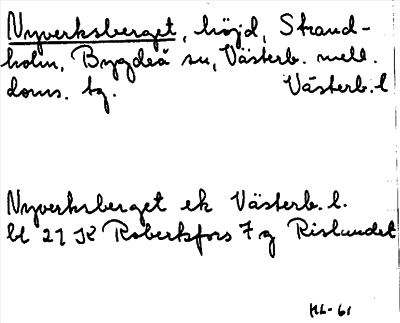 Nyverksberget, höjd, Strand-
holm, Bygdeå sn, Västerb. mell.
doms. tg. Västerb. l
Nyverksberget ek Västerb. l.
bl 21 K Robertsfors 7 g Rislundet
HL-61